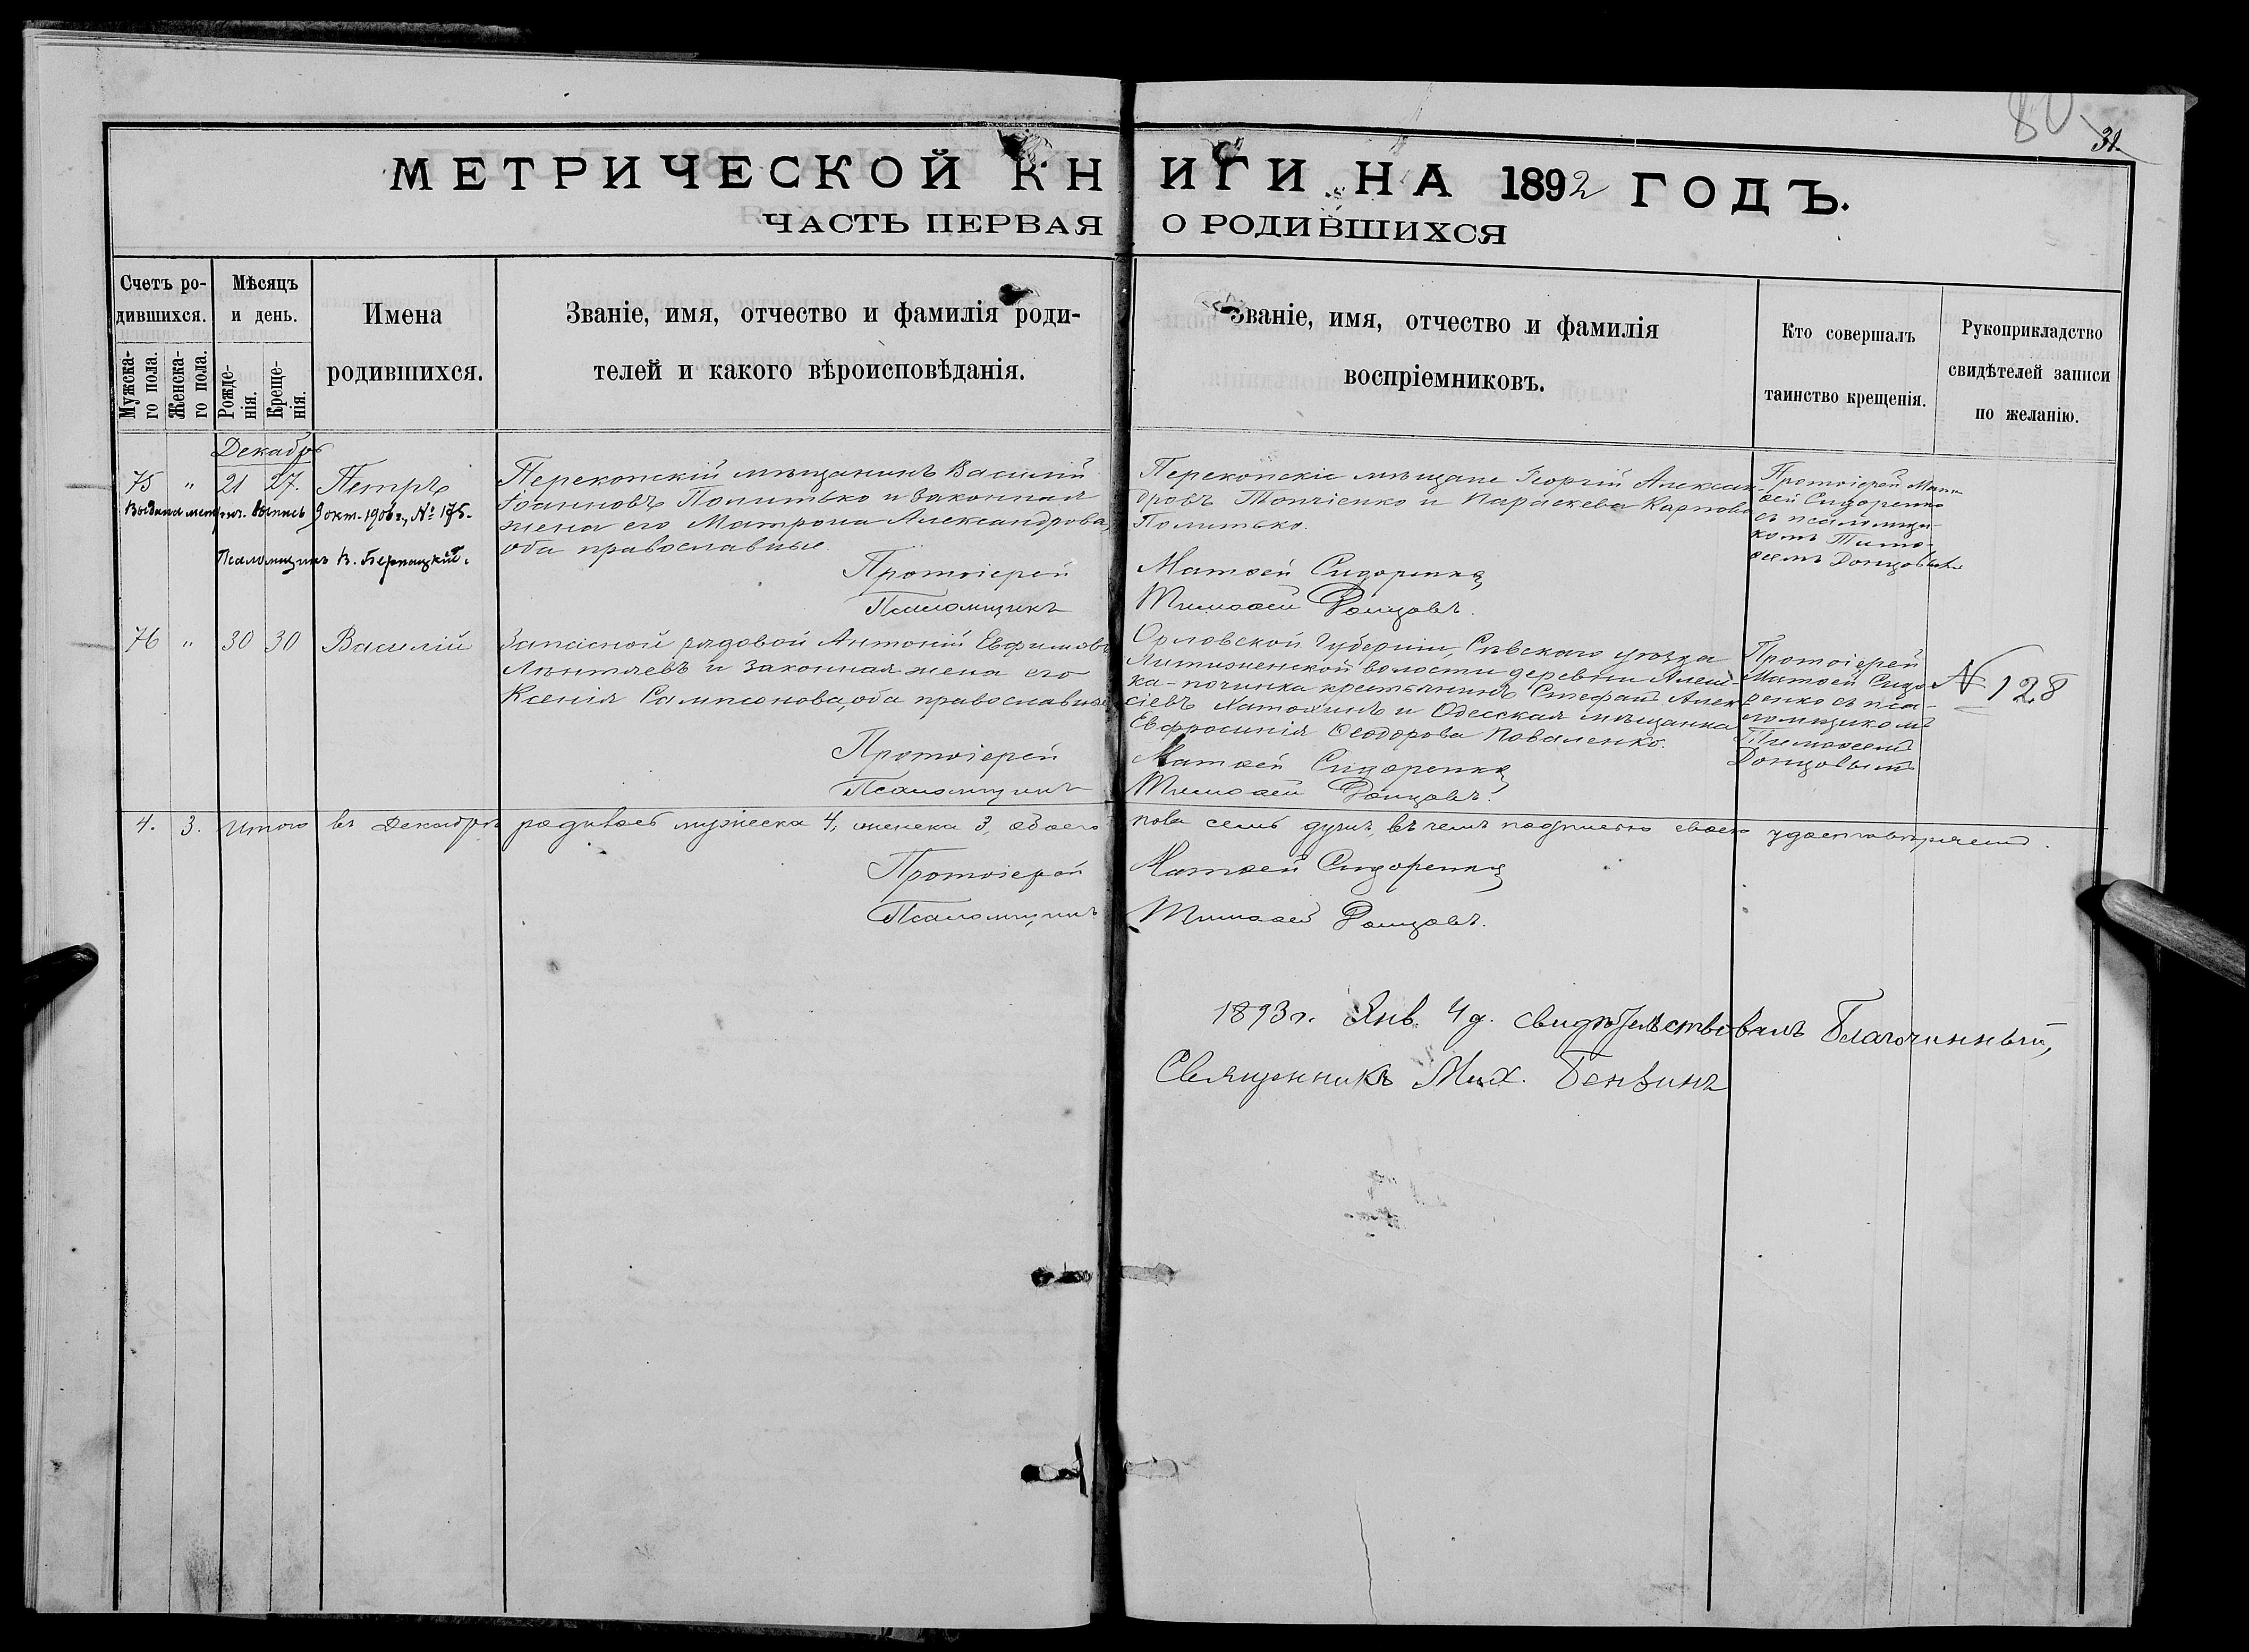 80
31.
МЕТРИЧЕСКОЙ КНИГИ НА 1892 ГОДЪ.
ЧАСТЬ ПЕРВАЯ О РОДИВШИХСЯ
Счетъ ро-
дившихся.
Мужска-
го пола.
Женска-
го пола.
Мѣсяцъ
и день.
Рожде-
нія.
Креще-
нія.
Имена
родившихся.
Званіе, имя, отчество и фамилія роди-
телей и какого вѣроисповѣданія.
Званіе, имя, отчество и фамилія
воспріемниковъ.
Кто совершалъ
таинство крещенія.
Рукоприкладство
свидѣтелей записи
по желанію.
Декабрь
75 " 21 27. Петръ
Выдана метрич. выпись 9 окт. 1906 г., № 175.
Псаломщикъ В. Бернацкій.
Перекопскій мѣщанинъ Василій
Іоанновъ Политько и законная
жена его Матрона Александрова,
оба православные.
Перекопскіе мѣщане Георгій Алексан-
дровъ Топчіенко и Параскева Карпова
Политько.
Протоіерей Мат-
ѳей Сидоренко
съ псаломщи-
комъ Тимо-
ѳеемъ Донцовымъ
Протоіерей Матѳей Сидоренко
Псаломщикъ Тимоѳей Донцовъ.
76 " 30 30 Василій
Запасной рядовой Антоній Евфимовъ
Лѣнтяевъ и законная жена его
Ксенія Сампсонова, оба православные
Орловской Губерніи, Сѣвскаго уѣзда
волости деревни Алеш-
ка-починка крестьянинъ Стефанъ Алек-
сіевъ и Одесская мѣщанка
Евфросинія Ѳеодорова Коваленко.
Протоіерей
Матѳей Сидо-
ренко съ пса-
ломщикомъ
Тимоѳеемъ
Донцовымъ
№ 128
Протоіерей Матѳей Сидоренко
Псаломщикъ Тимоѳей Донцовъ.
4. 3. Итого въ Декабрѣ родилось мужеска 4, женска 3, обоего пола семь душъ, въ чемъ подписью своею удостовѣряемъ.
Протоіерей Матѳей Сидоренко
Псаломщикъ Тимоѳей Донцовъ.
1893 г. Янв. 4 д. свидѣтельствовалъ Благочинный,
Священникъ Мих. Бензинъ